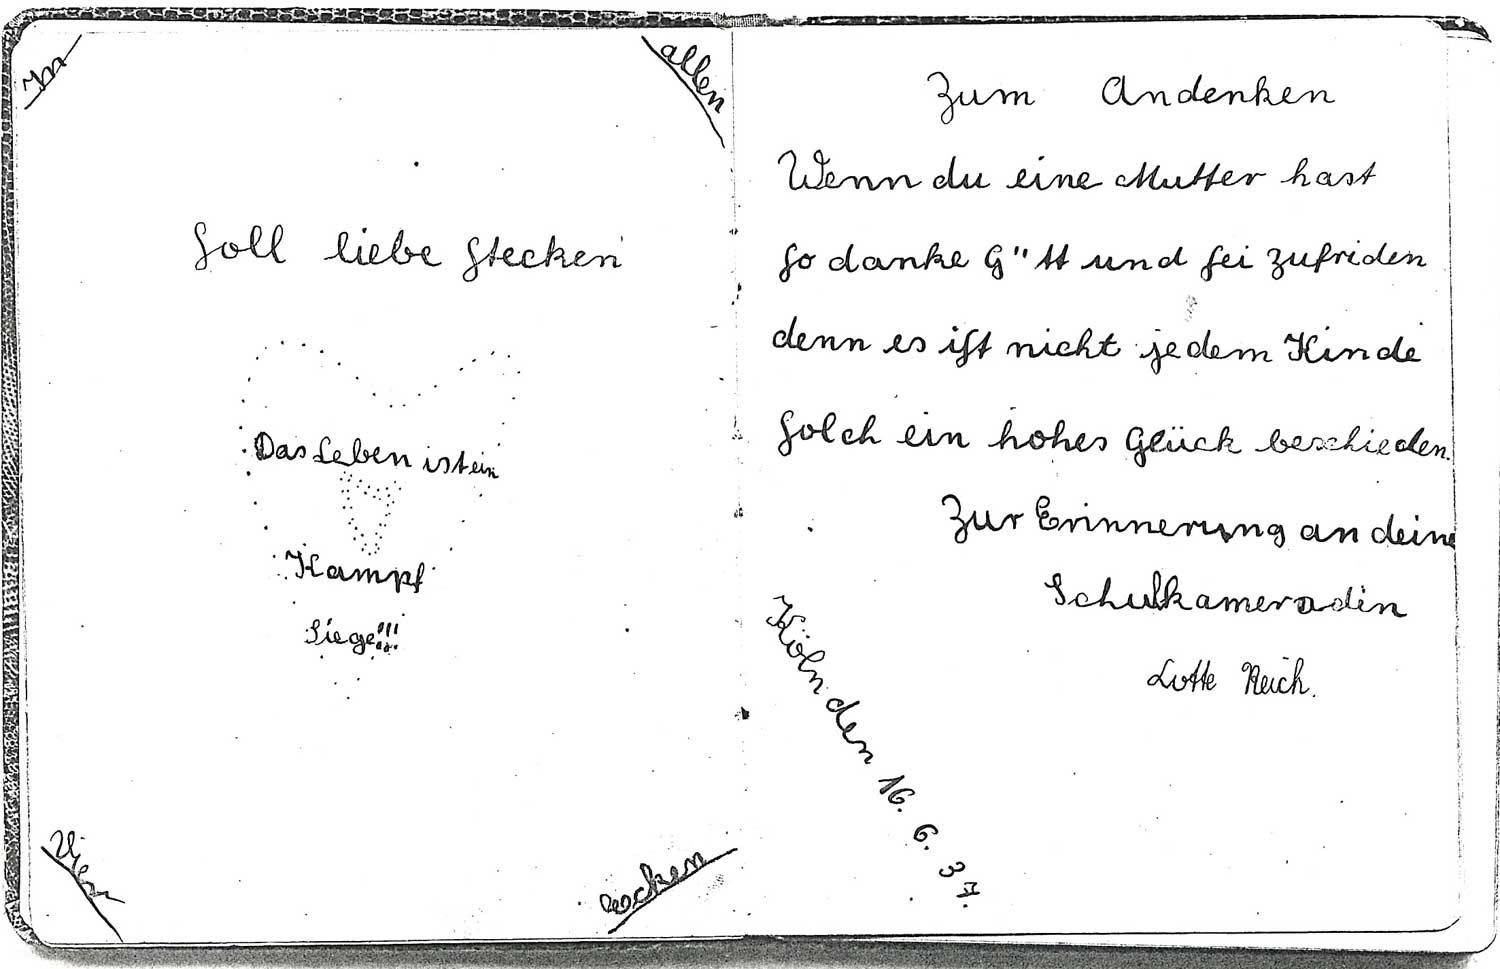 In
allen
Soll liebe stecken
Das Leben ist ein
Kampf
Siege!!!
Vier
ecken
Zum Andenken
Wenn du eine Mutter hast
so danke G"tt und sei zufriden
denn es ist nicht jedem Kinde
solch ein hohes Glück beschieden.
Zur Erinnerung an deine
Schulkameradin
Lotte Reich.
Köln den 16. 6. 37.